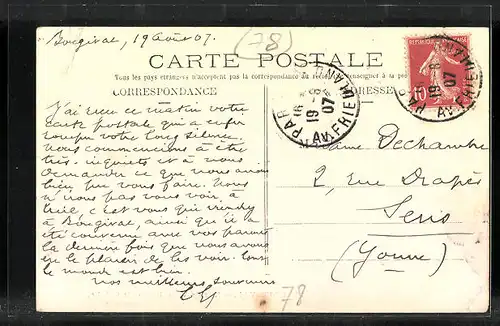 Bougival, 19 août 07.
(78)
CARTE POSTALE
Tous les pays étrangers n'acceptent pas la correspondance au
CORRESPONDANCE
ADRESSE
REPUBLIQUE FRANÇAISE
10
PARIS
19-8
07
AV. FRIEDLAND
J'ai reçu ce matin votre
carte postale qui a enfin
rompu votre long silence.
Nous commencions à être
très inquiets et à nous
demander ce que vous aviez
bien pu vous faire. Nous
n'irons pas vous voir, à
c'est vous qui viendrez
à Bougival, ainsi qu'il a
été convenu avec vos parents
la dernière fois que nous avons
eu le plaisir de les voir. Tout
le monde est bien.
nos meilleurs souvenirs
Madame Dechambre
2, rue Drapès
Sens
(Yonne)
78